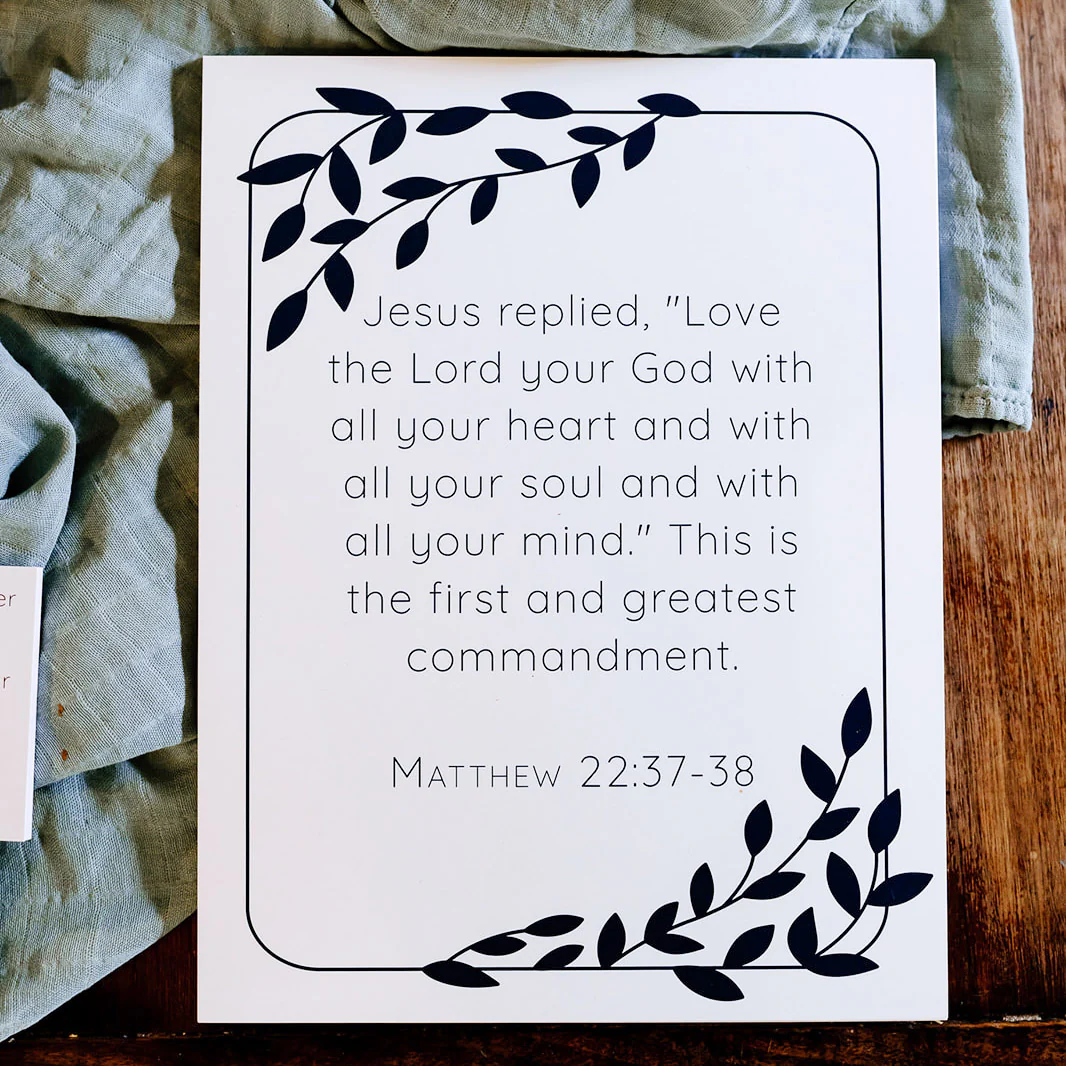 Jesus replied, "Love
the Lord your God with
all your heart and with
all your soul and with
all your mind." This is
the first and greatest
commandment.
Matthew 22:37-38
er
r